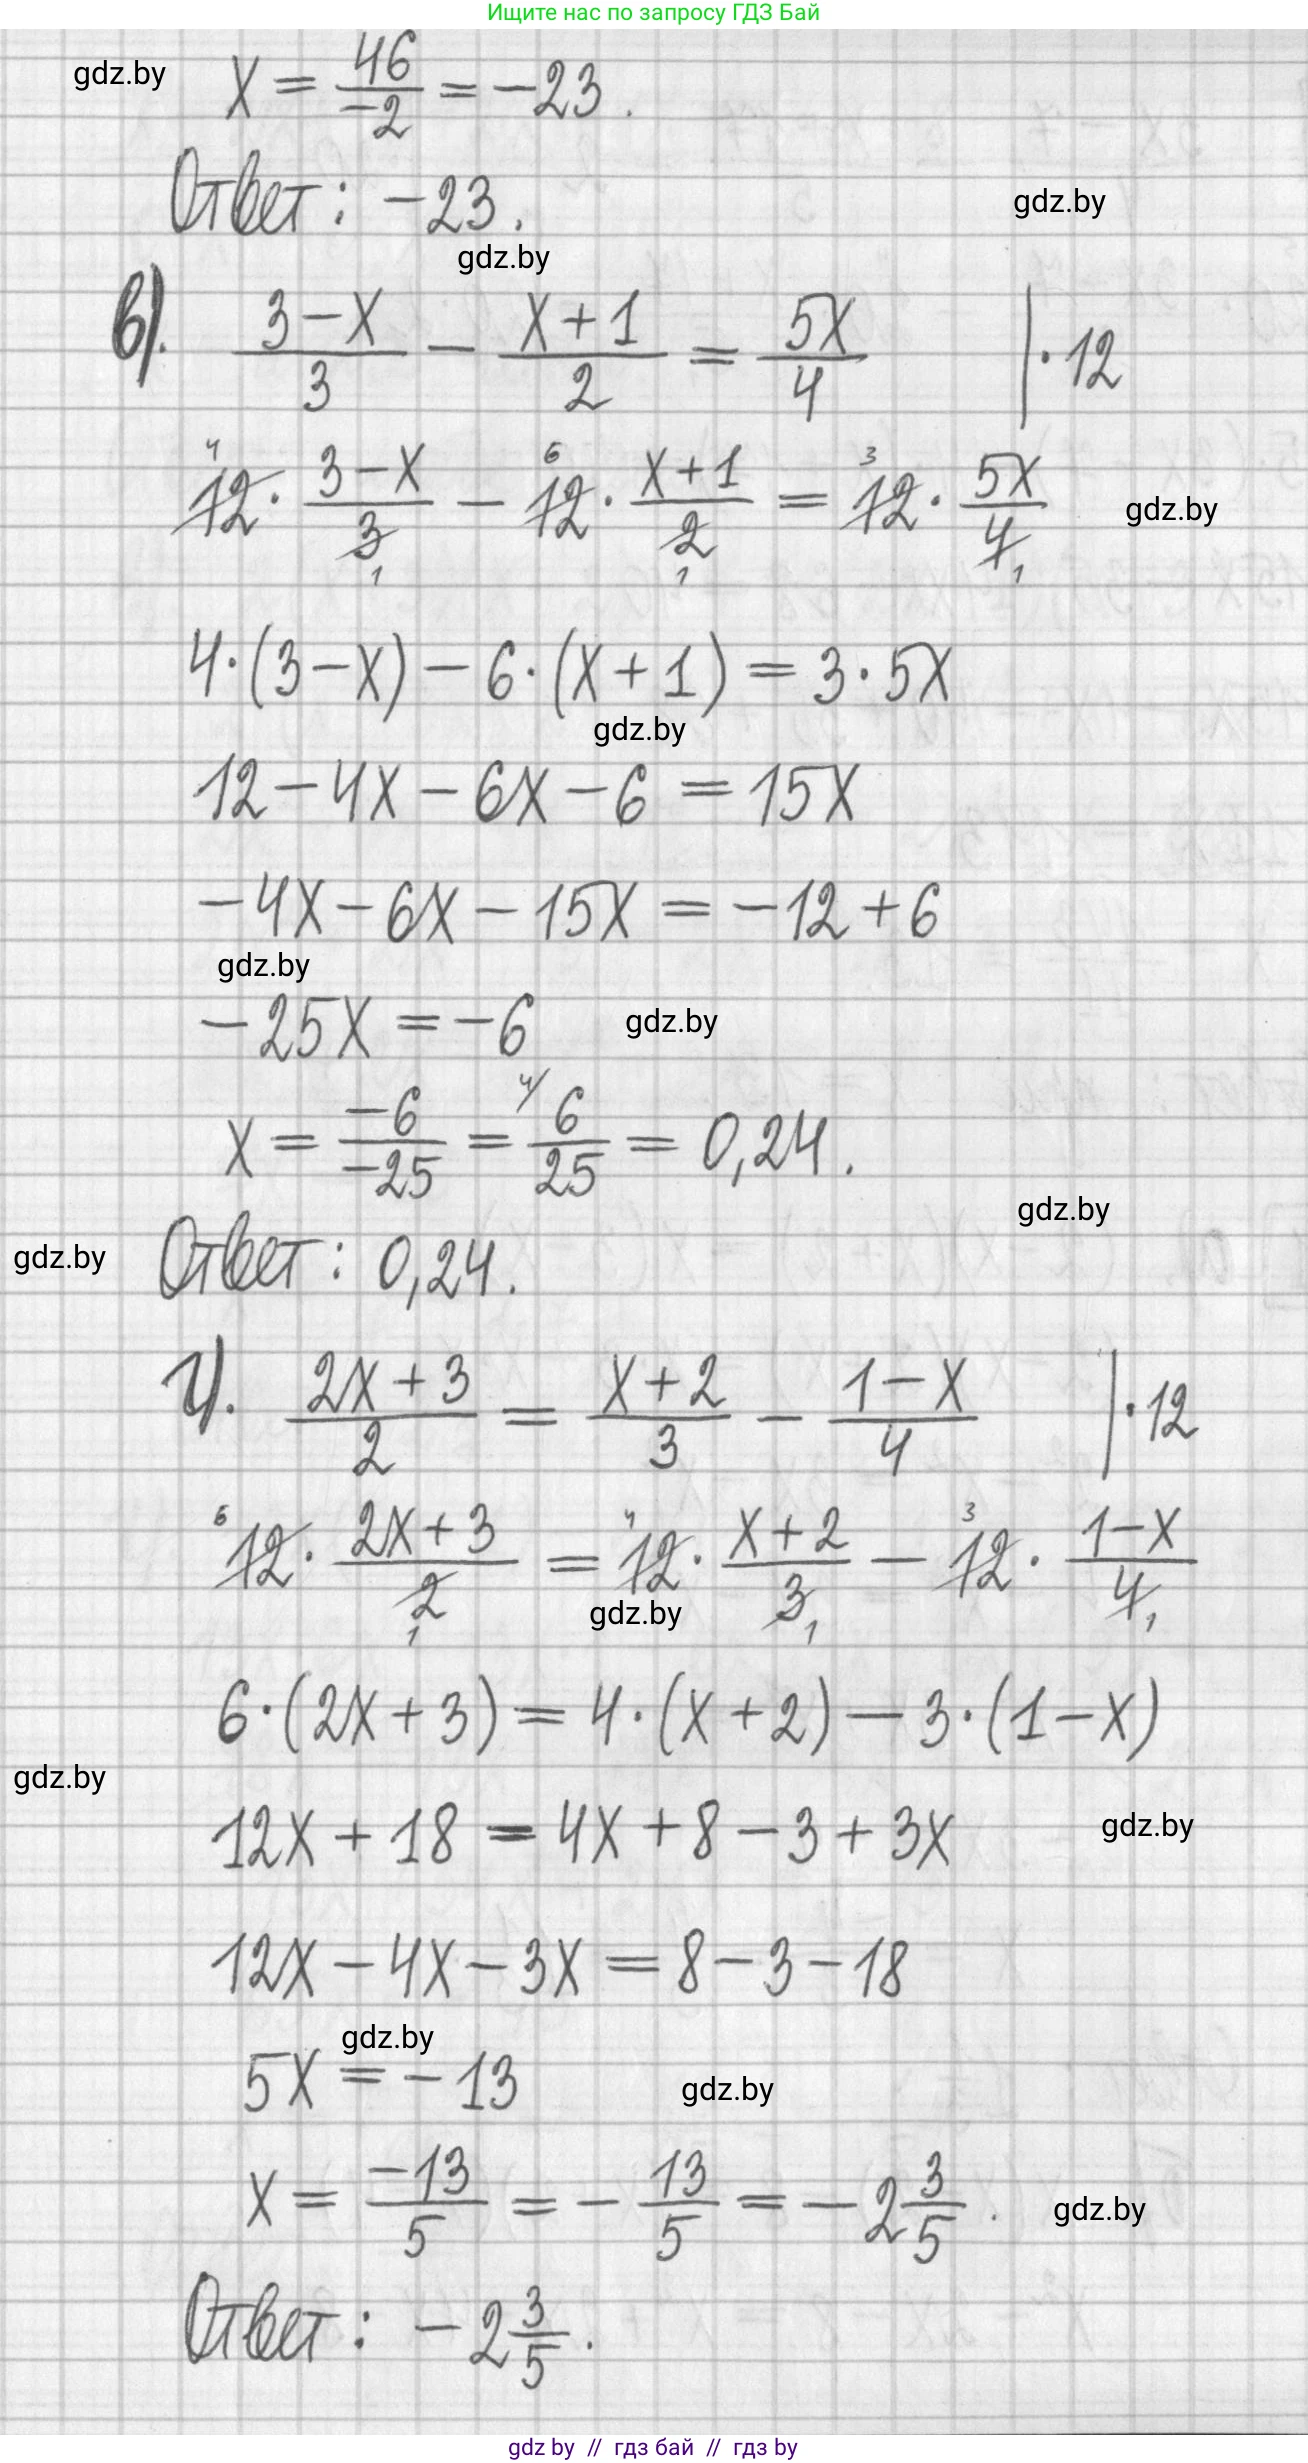 Ищите нас по запросу ГДЗ Бай
gdz.by
x = 46/-2 = -23.
Ответ: -23.
gdz.by
gdz.by
в). (3-x)/3 - (x+1)/2 = 5x/4 |·12
⁴12 · (3-x)/3₁ - ⁶12 · (x+1)/2₁ = ³12 · 5x/4₁
gdz.by
4·(3-x) - 6·(x+1) = 3·5x
gdz.by
12-4x-6x-6 = 15x
-4x-6x-15x = -12+6
gdz.by
-25x = -6
gdz.by
x = -6/-25 = ⁴⁾6/25 = 0,24.
gdz.by
gdz.by
Ответ: 0,24.
г). (2x+3)/2 = (x+2)/3 - (1-x)/4 |·12
⁶12 · (2x+3)/2₁ = ⁴12 · (x+2)/3₁ - ³12 · (1-x)/4₁
gdz.by
6·(2x+3) = 4·(x+2) - 3·(1-x)
gdz.by
12x+18 = 4x+8-3+3x
gdz.by
12x-4x-3x = 8-3-18
gdz.by
5x = -13
gdz.by
x = -13/5 = -13/5 = -2 3/5.
gdz.by
Ответ: -2 3/5.
gdz by // гдз бай // гдз by